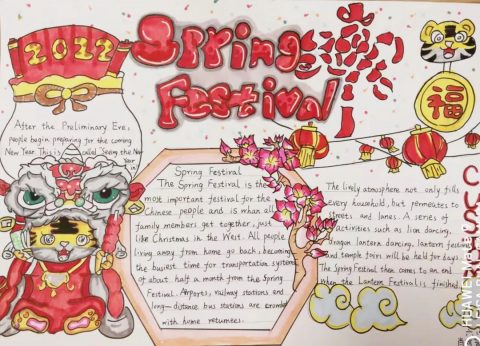 2022
Spring
Festival
福
After the Preliminary Eve,
people begin preparing for the coming
New Year. This is called "Seeing the New
Year in
Spring Festival
The Spring Festival is the
most important festival for the
Chinese people and is when all
family members get together, just
like Christmas in the West. All people
living away from home go back, becoming
the busiest time for transportation systems
of about half a month from the Spring
Festival. Airports, railway stations and
long-distance bus stations are crowded
with home returnees.
The lively atmosphere not only fills
every household, but permeates to
streets and lanes. A series of
activities such as lion dancing,
dragon lantern dancing, lantern festivals
and temple fairs will be held for days.
The Spring Festival then comes to an end
when the Lantern Festival is finished.
HUAWEI